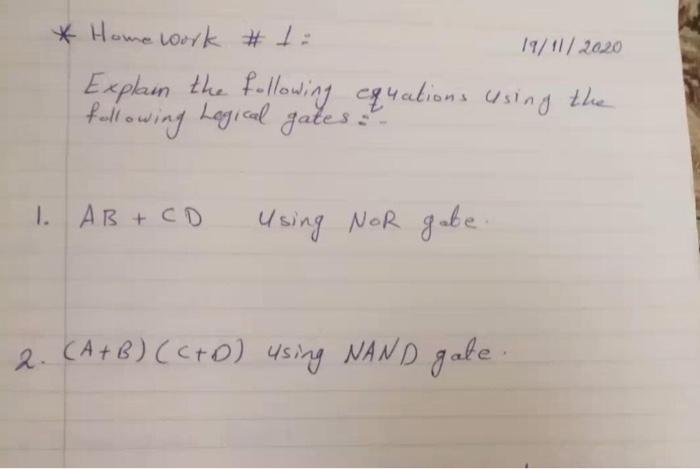 * Homework # 1:
19/11/2020
Explain the following equations using the
following Logical gates:-
1. AB + CD using NOR gate.
2. (A+B) (C+D) using NAND gate.